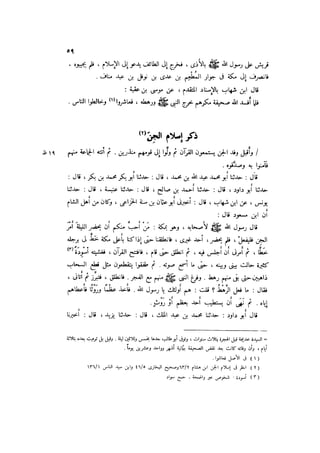 ٥٩
قريش على رسول الله ﷺ بالأذى ، فخرج إلى الطائف يدعو إلى الإسلام ، فلم يجيبوه ،
فانصرف إلى مكة فى جوار المُطْعِم بن عدى بن نوفل بن عبد مناف .
قال ابن شهاب بالإسناد المتقدم ، عن موسى بن عقبة :
فلما أفسد الله صحيفة مكرهم خرج النبى ﷺ ورهطه ، فعاشروا(١) وخالطوا الناس .
ذكر إسلام الجنّ(٢)
/ وأقبل وفد الجن يستمعون القرآن ثم ولّوا إلى قومهم منذرين . ثم أتته الجماعة منهم
١٩ ظ
فآمنوا به وصدّقوه .
حدثنا أبو محمد عبد الله بن محمد ، قال : حدثنا أبو بكر محمد بن بكر ، قال :
حدثنا أبو داود ، قال : حدثنا أحمد بن صالح ، قال : حدثنا عنبسة ، قال : حدثنا
يونس ، عن ابن شهاب ، قال : أخبرنى أبو عثمان بن سنة الخزاعى ، وكان من أهل الشام
أن ابن مسعود قال :
قال رسول الله ﷺ لأصحابه ، وهو بمكة : مَنْ أحبَّ منكم أن يحضر الليلة أمْرَ
الجن فليفعل ، فلم يحضر أحد غيرى ، فانطلقنا حتى إذا كنا بأعلى مكة خطّ لى برجله
خطًّا ، ثم أمرنى أن أجلس فيه ، ثم انطلق حتى قام ، فافتتح القرآن ، فغشيته أَسْوِدَةٌ(٣)
كثيرة حالت بينى وبينه ، حتى ما أسمع صوته . ثم طفقوا يتقطعون مثل قطع السحاب
ذاهبين حتى بقى منهم رهط . وفرغ النبى ﷺ منهم مع الفجر . فانطلق ، فتبرّز ثم أتانى ،
فقال : ما فعل الرَّهْطُ ؟ قلت : هم أولئك يا رسول الله . فأخذ عظْمًا ورَوْثًا فأعطاهم
إياه . ثم نهى أن يستطيب أحد بعظم أو رَوْث .
قال أبو داود : حدثنا محمد بن عبد الملك ، قال : حدثنا يزيد ، قال : أخبرنا
= السيدة خديجة قبل الهجرة بثلاث سنوات ، وتوفى أبو طالب بعدها بخمس وثلاثين ليلة . وقيل بل توفيت بعده بثلاثة
أيام ، وأن وفاته كانت بعد نقض الصحيفة بثمانية أشهر وواحد وعشرين يومًا .
(١) فى الأصل فعاشوا .
(٢) انظر فى إسلام الجن ابن هشام ٦٣/٢ وصحيح البخارى ٤٦/٥ وابن سيد الناس ١٣٦/١
(٣) أسودة : شخوص غير واضحة ، جمع سواد